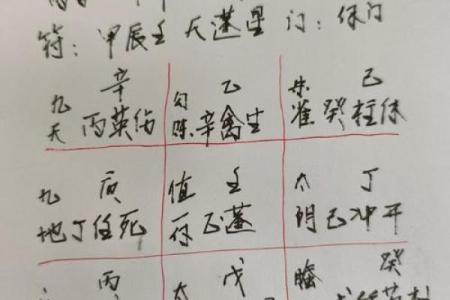 符：甲辰壬 天蓬星 门：休门
辛 乙 己
九天 丙英伤 勾陈 辛禽生 朱雀 癸柱休
庚 壬 丁
九地 丁任死 值符 乙蓬 太阴 己冲开
丙 戊 癸